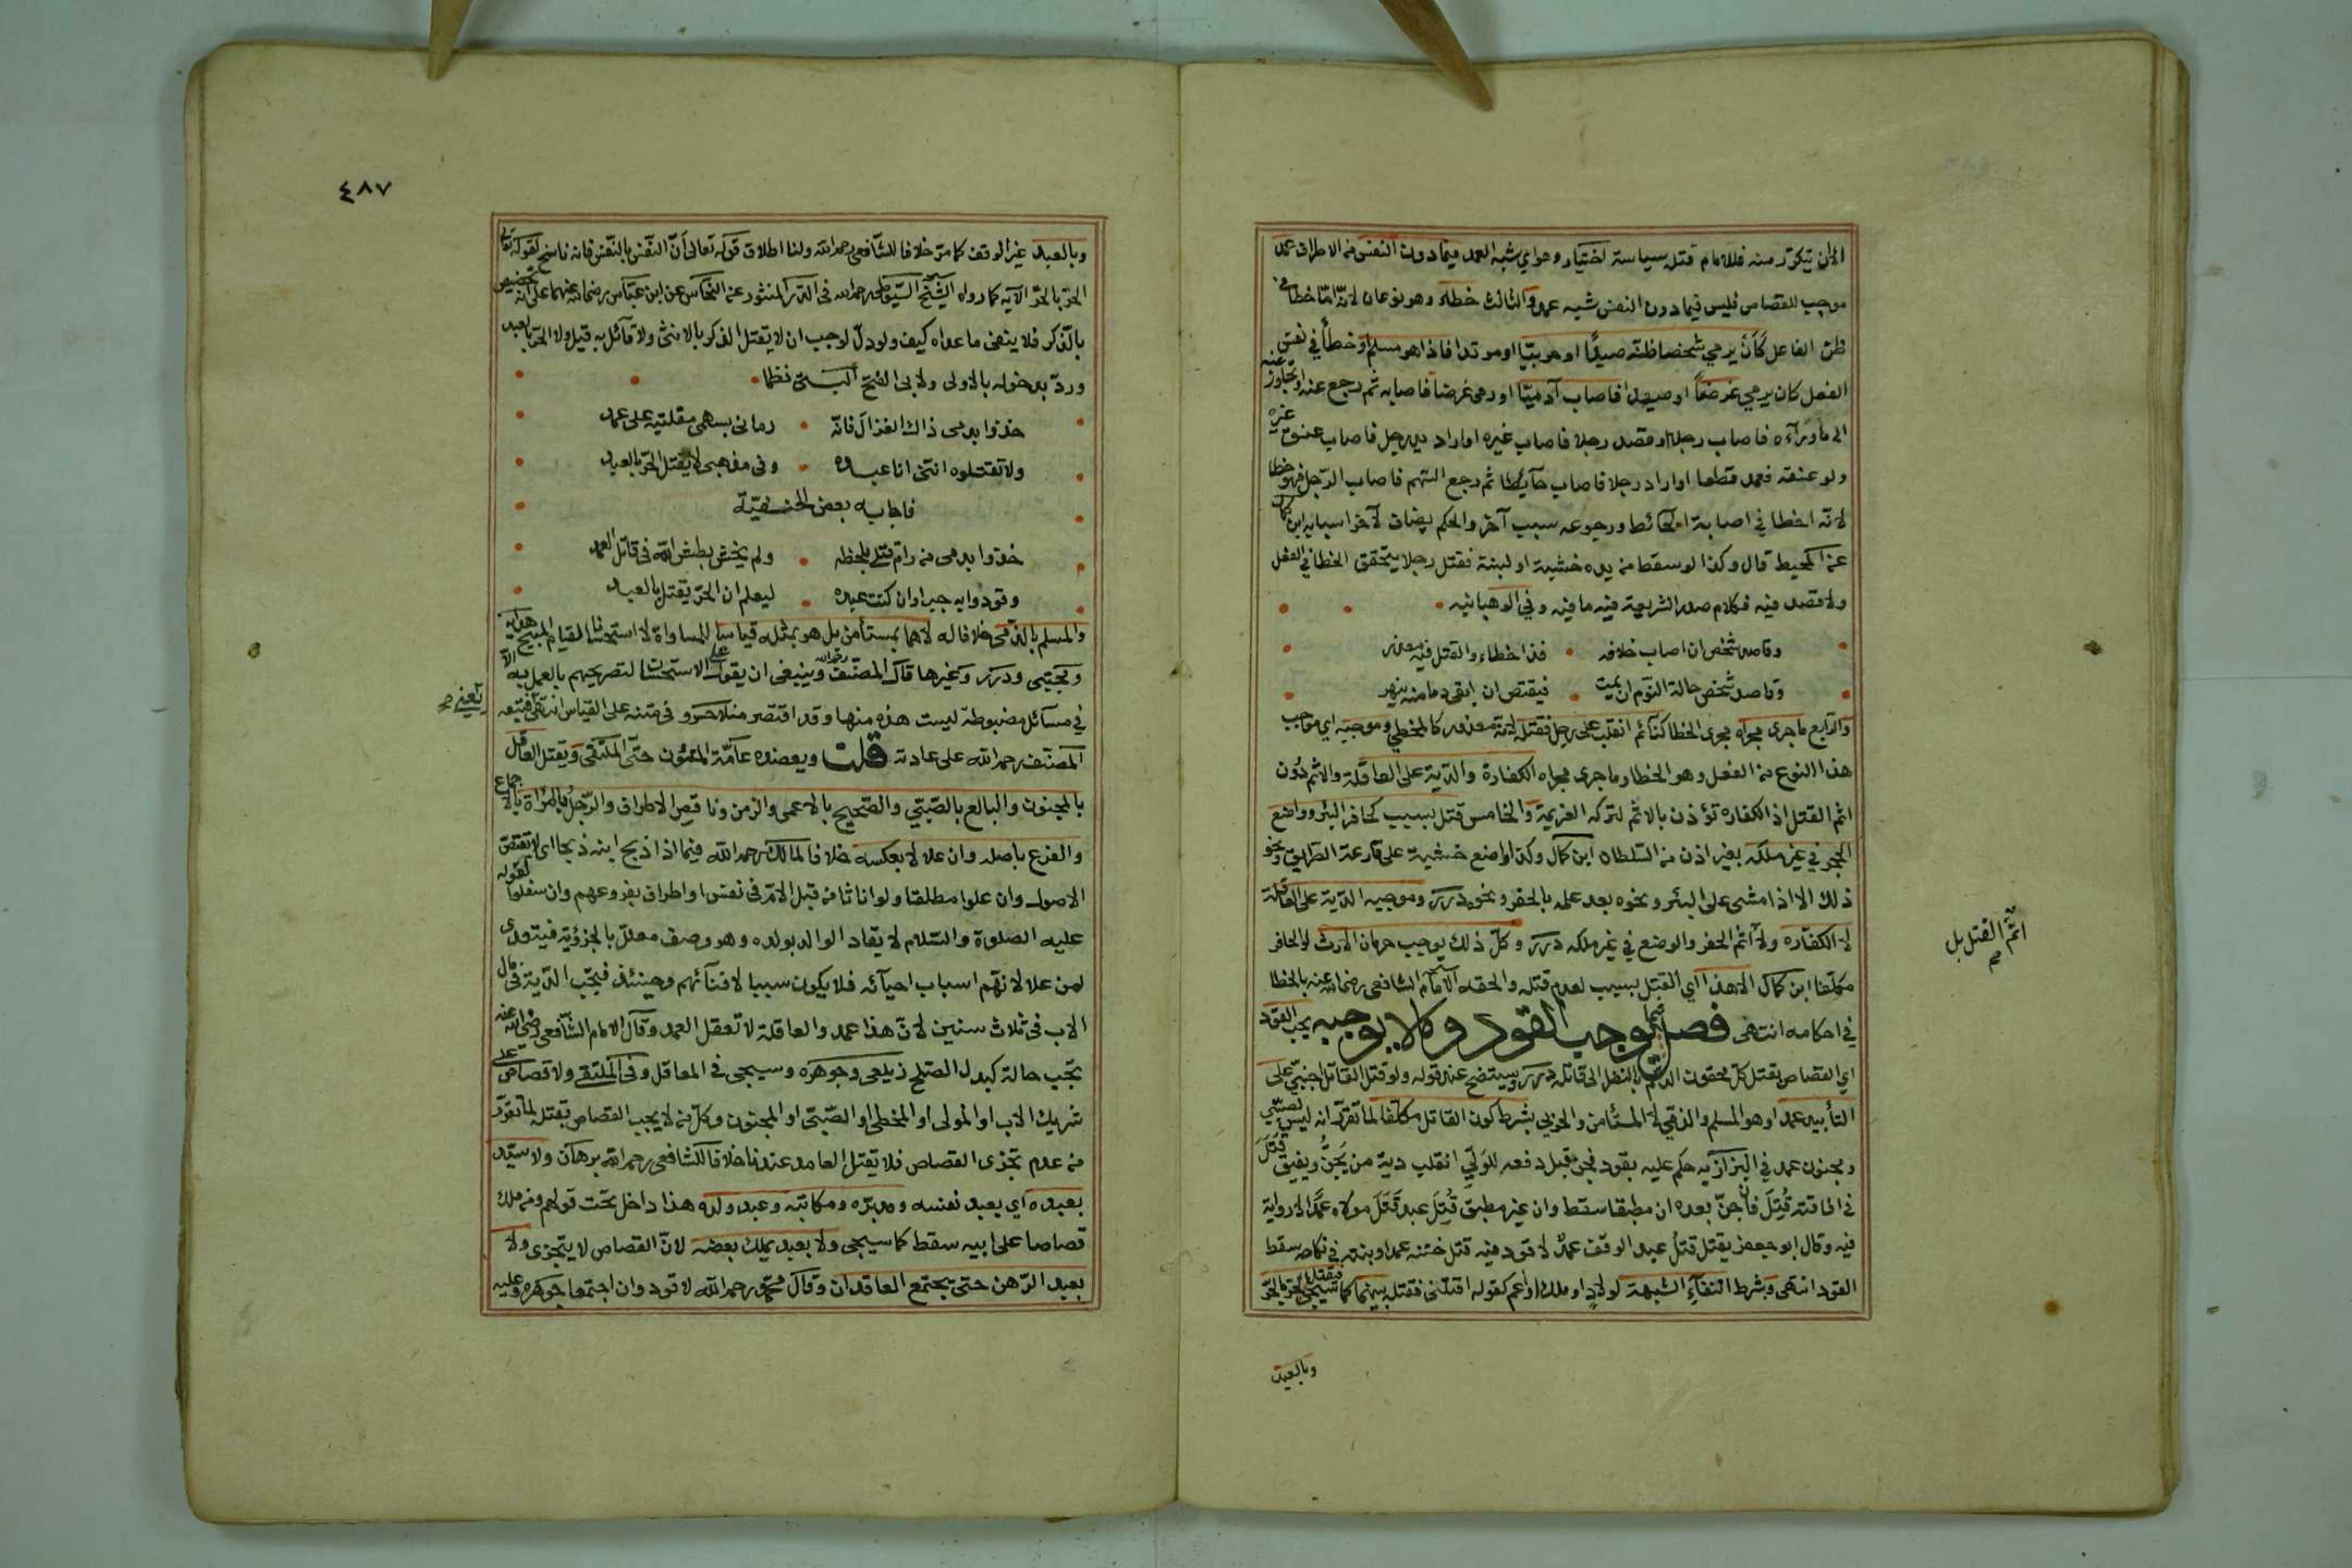 الا ان يتكرر منه فللامام قتله سياسة اختيار وهو اي شبه العمد فيما دون النفس من الاطراف عمد
موجب للقصاص فليس فيما دون النفس شبه عمد والثالث خطأ وهو نوعان لانه اما خطأ في
ظن الفاعل كأن يرمي شخصا ظنه صيدًا او حربيّا او مرتدا فاذا هو مسلم او خطأ في نفس
الفعل كان يرمي غرضًا او صيدا فاصاب آدميّا او رمى غرضا فاصابه ثم رجع عنه او تجاوز عنه
الى ما ورآءه فاصاب رجلا او قصد رجلا فاصاب غيره او اراد يد رجل فاصاب عنق غيره
ولو عنقه فعمد قطعا او اراد رجلا فاصاب حآيطا ثم رجع السهم فاصاب الرجل فهو خطا
لانه اخطا في اصابة الحائط ورجوعه سبب آخر والحكم يضاف لآخر اسبابه ابن كمال
عن المحيط قال وكذا لو سقط من يده خشبة او لبنة فقتل رجلا يتحقق الخطا في الفعل
ولا قصد فيه فكلام صدر الشريعة فيه ما فيه وفي الوهبانيه
وقاصد شخص ان اصاب خلافه فذا خطاء والقتل فيه معذر
وقاصد شخص حالة النوم ان يمت فيقتص ان ابقى دما منه ينهر
والرابع ما جرى مجراه مجرى الخطا كنائم انقلب على رجل فقتله لانه معذور كالمخطي وموجبه اي موجب
هذا النوع من الفعل وهو الخطا وما جرى مجراه الكفارة والدية على العاقلة والاثم دُون
اثم القتل اذ الكفاره تؤذن بالاثم لتركه العزيمة والخامس قتل بسبب كحافر البئر وواضع
الحجر في غير ملكه بغير اذن من السلطان ابن كمال وكذا واضع خشبة على قارعة الطريق ونحو
ذلك الا اذا مشى على البئر ونحوه بعد علمه بالحفر ونحوه درر وموجبه الدية على العاقلة
لا الكفاره ولا اثم الحفر والوضع في غير ملكه درر وكل ذلك يوجب حرمان الارث لو الحافر
اثم القتل بل
صح
مكلفا ابن كمال الا هذا اي القتل بسبب لعدم قتله والحقه الامام الشافعي رضي الله عنه بالخطا
في احكامه انتهى فصل فيما يوجب القود وما لا يوجبه يجب القود
اي القصاص بقتل كل محقون الدم بالنظر الى قاتله درر وسيتضح عند قوله ولو قتل القاتل اجنبي على
التأبيد عمدا وهو المسلم والذمي لا المستأمن والحربي بشرط كون القاتل مكلفا لما تقرر انه ليس لصبي
ومجنون عمد في البزازيه حكم عليه بقود فجن قبل دفعه للولي انقلب دية من يجن ويفيق قتل
في افاقته قُتِلَ فان جنّ بعده ان مطبقا سقط وان غير مطبق قُتِلَ عبد قَتَلَ مولاه عمدًا لا رواية
فيه وقال ابو جعفر يقتل قتلُ عبد الوقف عمدٌ لا قود فيه قتل ختنه عمدا وبنته في نكاحه سقط
القود انتهى وبشرط انتفاءِ الشبهة كولادٍ او ملك او اعم كقوله اقتلني فقتله بينهما كما سيجيء فيقتل الحر بالحر
وبالعبد
٤٨٧
وبالعبد غير الوقف كما مر خلافا للشافعي رحمه الله ولنا اطلاق قوله تعالى أنّ النفس بالنفس فانه ناسخ لقوله تعالى
الحر بالحر الآيه كما رواه الشيخ السيوطي رحمه الله في الدر المنثور عن النحاس عن ابن عباس رضي الله عنهما على انه تخصيص
بالذكر فلا ينفي ما عداه كيف ولو دل لوجب ان لا يقتل الذكر بالانثى ولا قآئل به قيل ولا الحر بالعبد
وردّ بدخوله بالاولى ولابى الفتح البستى نظما
خذوا بدمى ذاك الغزال فانه رمانى بسهمى مقلتيه على عمد
ولا تقتلوه انني انا عبده وفى مذهبى لا يقتل الحر بالعبد
فاجابه بعض الحنفيّة
خذوا بدمى من رام قتلى بلحظه ولم يخش بطش الله فى قاتل العمد
وقودوا به جبرا وان كنت عبده ليعلم ان الحر يقتل بالعبد
والمسلم بالذمى خلافا له لا هما بمستأمن بل هو بمثله قياسا للمساواة لا استحسانا لقيام المبيح هدايه
ومجتبى ودرر وغيرها قال المصنف رحمه الله وينبغى ان يقول على الاستحسان لتصريحهم بالعمل به الا
في مسآئل مضبوطة ليست هذه منها وقد اقتصر منلا خسرو فى متنه على القياس انتهى فتبعه
يعنى صح
المصنف رحمه الله على عادته قلت ويعضده عامّة المتون حتّى الملتقى ويقتل العاقل
بالمجنون والبالع بالصّبيّ والصّحيح بالاعمى والزمن وناقص الاطراف والرّجُل بالمرأة بالاجماع
والفرع باصله وان علا لا بعكسه خلافا لمالك رحمه الله فيما اذا ذبح ابنه ذبحا اى لا تقتص
الاصول وان علوا مطلقا ولو اناثا من قبل الام فى نفس او اطراف بفروعهم وان سفلوا لقوله
عليه الصلوة والسّلام لا يقاد الوالد بولده وهو وصف معلل بالجزئية فيتعدى
لمن علا لانهم اسباب احيآئه فلا يكون سببا لافنآئهم وحينئذ فتجب الدّية فى مال
الاب فى ثلاث سنين لانّ هذا عمد والعاقلة لا تعقل العمد وقال الامام الشافعى رضى الله عنه
تجب حالة كبدل الصلح زيلعى وجوهره وسيجى فى المعاقل وفى الملتقى ولا قصاص على
شريك الاب او المولى او المخطى او الصّبيّ او المجنون وكل من لا يجب القصاص بقتله لما تقرر
من عدم تجزى القصاص فلا يقتل العامد عندنا خلافا للشافعى رحمه الله برهان ولا سيّد
بعبده اي بعبد نفسه ومدبّره ومكاتبه وعبد ولده هذا داخل تحت قولهم ومن ملك
قصاصا على ابيه سقط كما سيجى ولا بعبد يملك بعضه لانّ القصاص لا يتجزى ولا
بعبد الرّهن حتى يجتمع العاقدان وقال محمّد رحمه الله لا قود وان اجتمعا جوهره وعليه